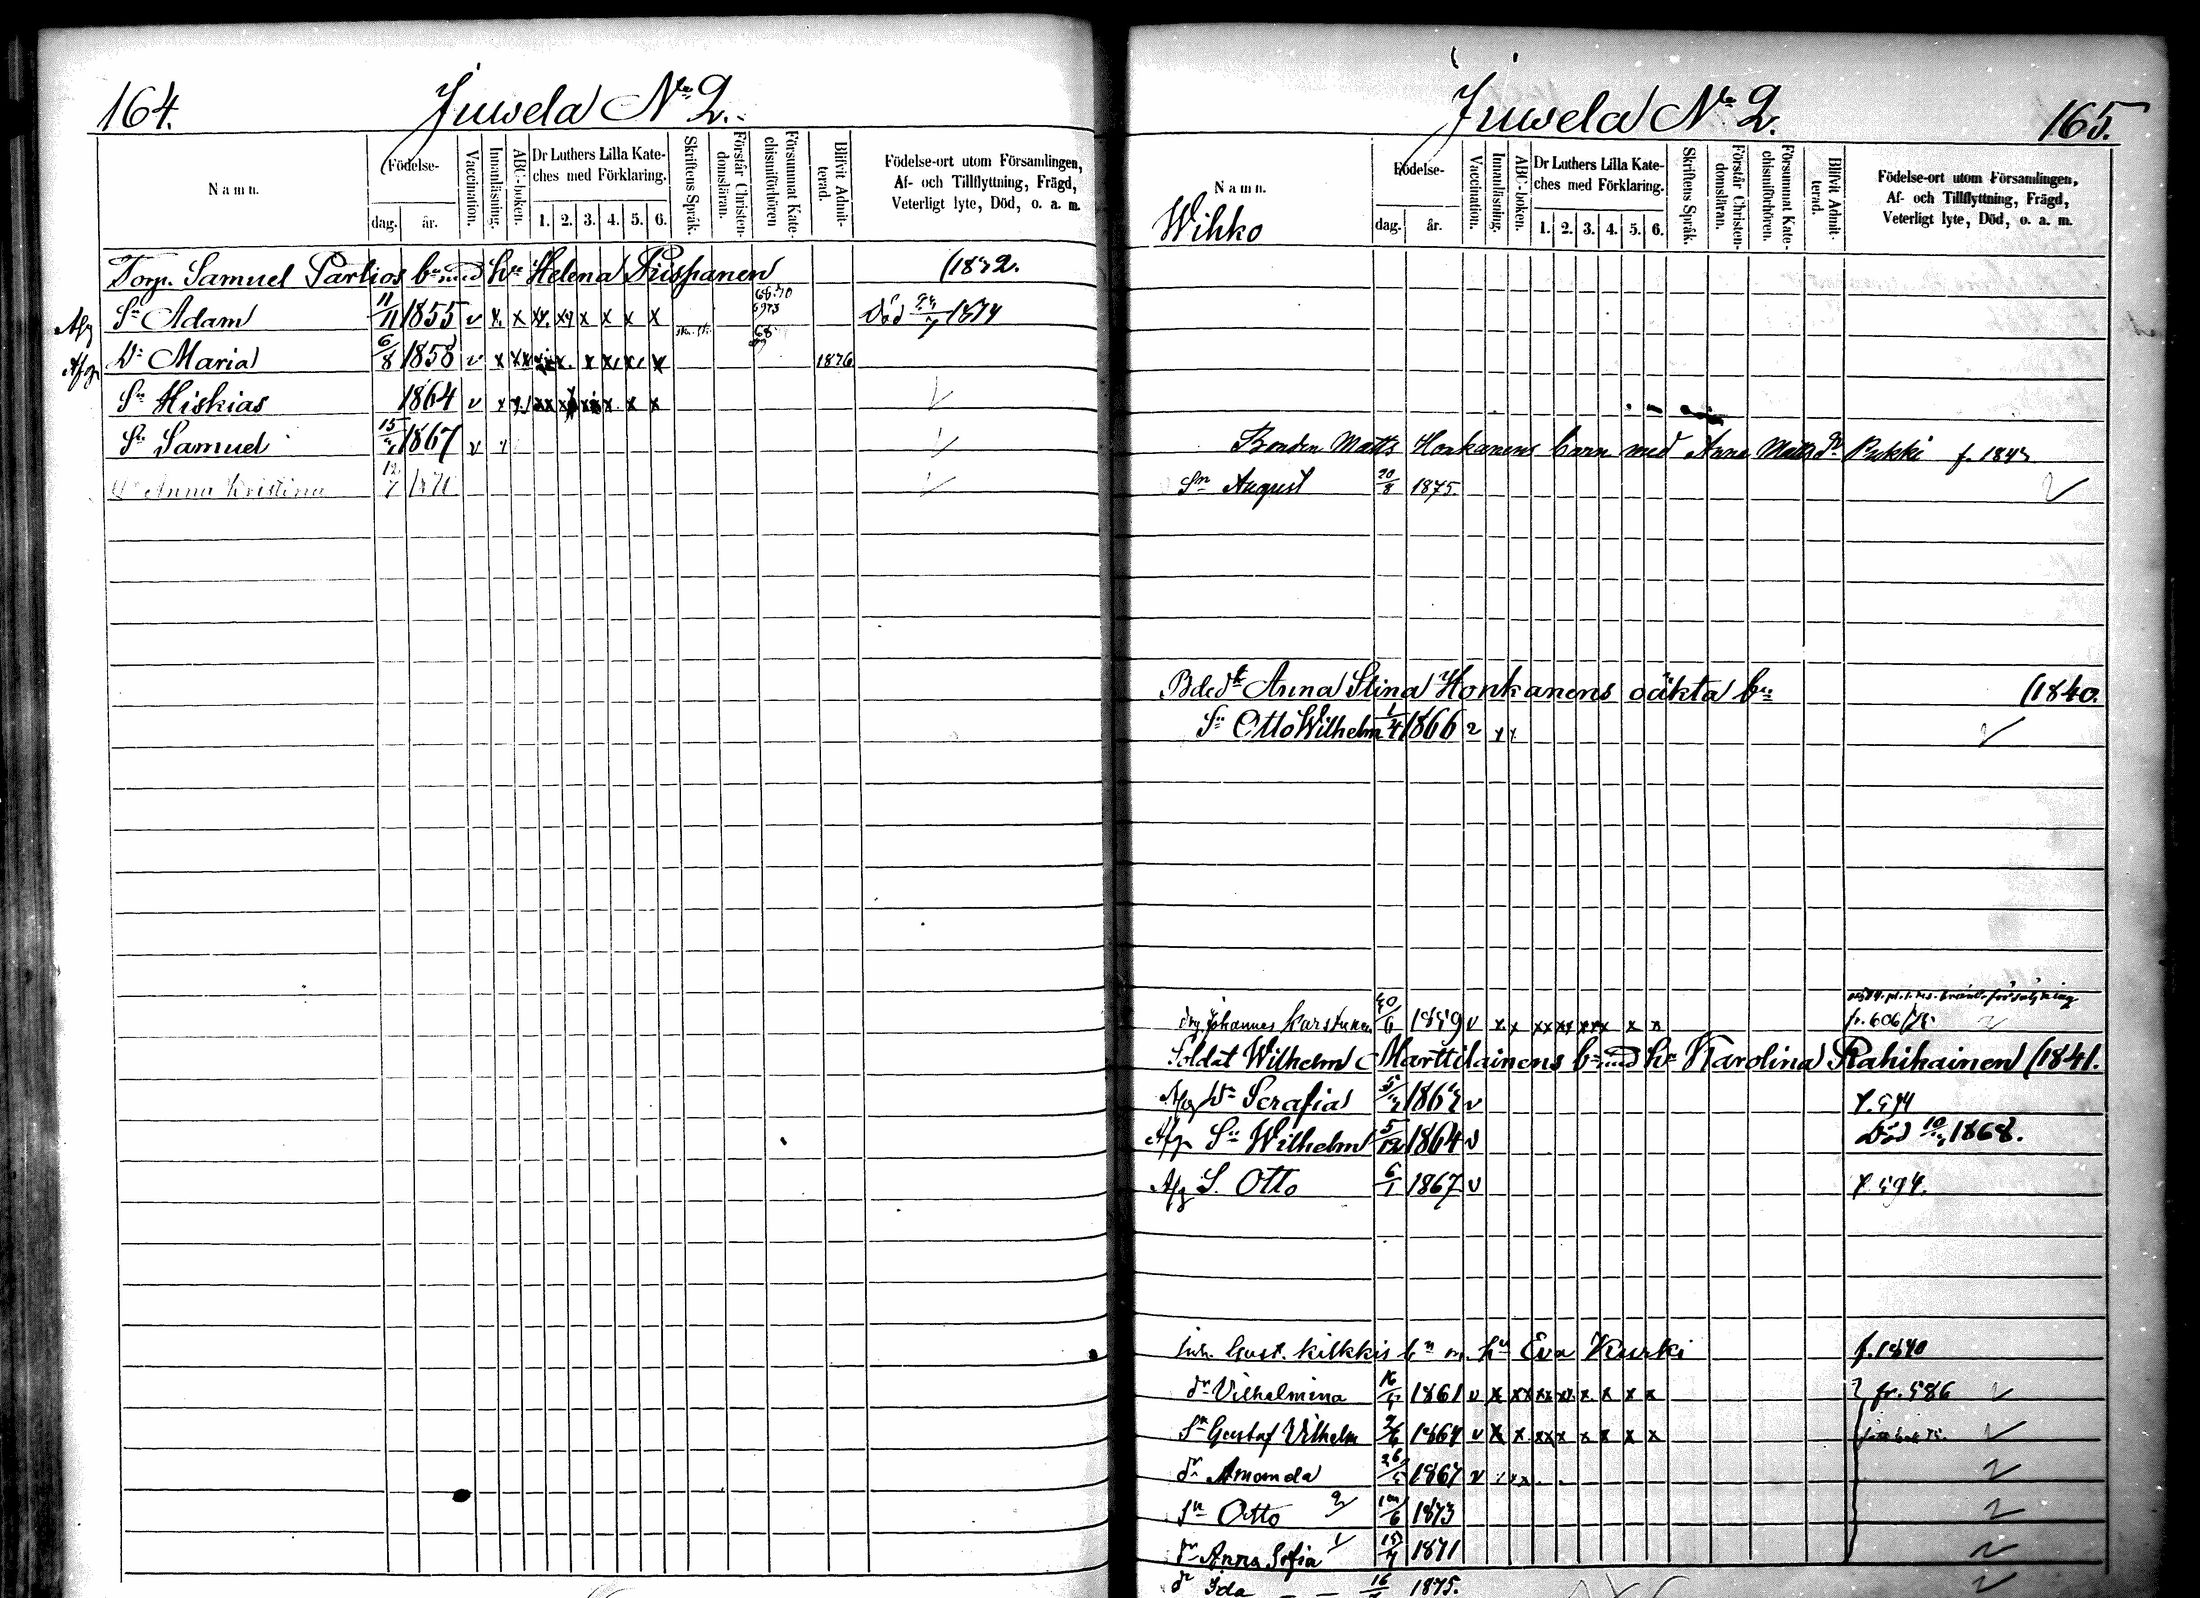 164. Juwela No 2.
Namn.
Födelse-
dag. år.
Vaccination.
Innanläsning.
ABC-boken.
Dr Luthers Lilla Kate-
ches med Förklaring.
1. 2. 3. 4. 5. 6.
Skriftens Språk.
Förstår Christen-
domsläran.
Försummat Kate-
chismiförhören
Blifvit Admit-
terad.
Födelse-ort utom Församlingen,
Af- och Tillflyttning, Frägd,
Veterligt lyte, Död, o. a. m.
Torp. Samuel Parlios bn med hu Helena Piispanen
Sn Adam 11/11 1855 v x. x xx. xx x x x x Död 1874
Dr Maria 6/8 1858 v x xx x x. x x x x 1876
Sn Hiskias 1864 v x x xx x x x x x
Sn Samuel 1867 v
Dr Anna Kristina 12/7 1871
Juwela No 2. 165.
Namn.
Wihko
Födelse-
dag. år.
Vaccination.
Innanläsning.
ABC-boken.
Dr Luthers Lilla Kate-
ches med Förklaring.
1. 2. 3. 4. 5. 6.
Skriftens Språk.
Förstår Christen-
domsläran.
Försummat Kate-
chismiförhören.
Blifvit Admit-
terad.
Födelse-ort utom Församlingen,
Af- och Tillflyttning, Frägd,
Veterligt lyte, Död, o. a. m.
Bonden Matts Honkanens barn med Anna Mattsdr Pukki
Sn August 20/8 1875.
Anna Stina Honkanens oäkta bn (1840.
Sn Otto Wilhelm 1/4 1866 v x x
Johannes Karstunen 1859 v x x xx xx xxx x x fr. 606/
Soldat Wilhelm Marttilainens bn med hu Karolina Rahikainen (1841.
Afg Dr Serafia v
Afg Sn Wilhelm 5/12 1864 v Död 1868.
Afg S. Otto 6/1 1867 v
Inh. Gust. Kilkkis bn m. hu Eva Kurki f. 1840
dr Vilhelmina 1861 v x xx xx xx x x x x fr. 586
Sn Gustaf Vilhelm 1864 v x x xx x x x x x
dr Amanda 1867 v
Sn Otto 1873
dr Anna Sofia 1871
dr Ida 1875.